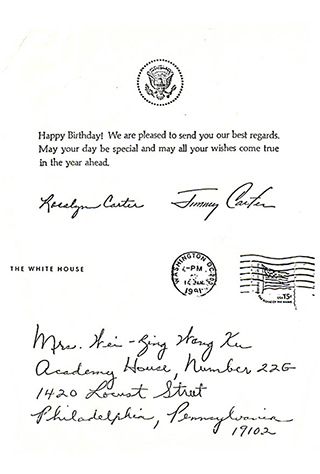 Happy Birthday! We are pleased to send you our best regards.
May your day be special and may all your wishes come true
in the year ahead.
Rosalynn Carter Jimmy Carter
THE WHITE HOUSE
WASHINGTON, DC
PM
USA 15c
Mrs. Wei-Bing Wang Ku
Academy House, Number 22G
1420 Locust Street
Philadelphia, Pennsylvania
19102